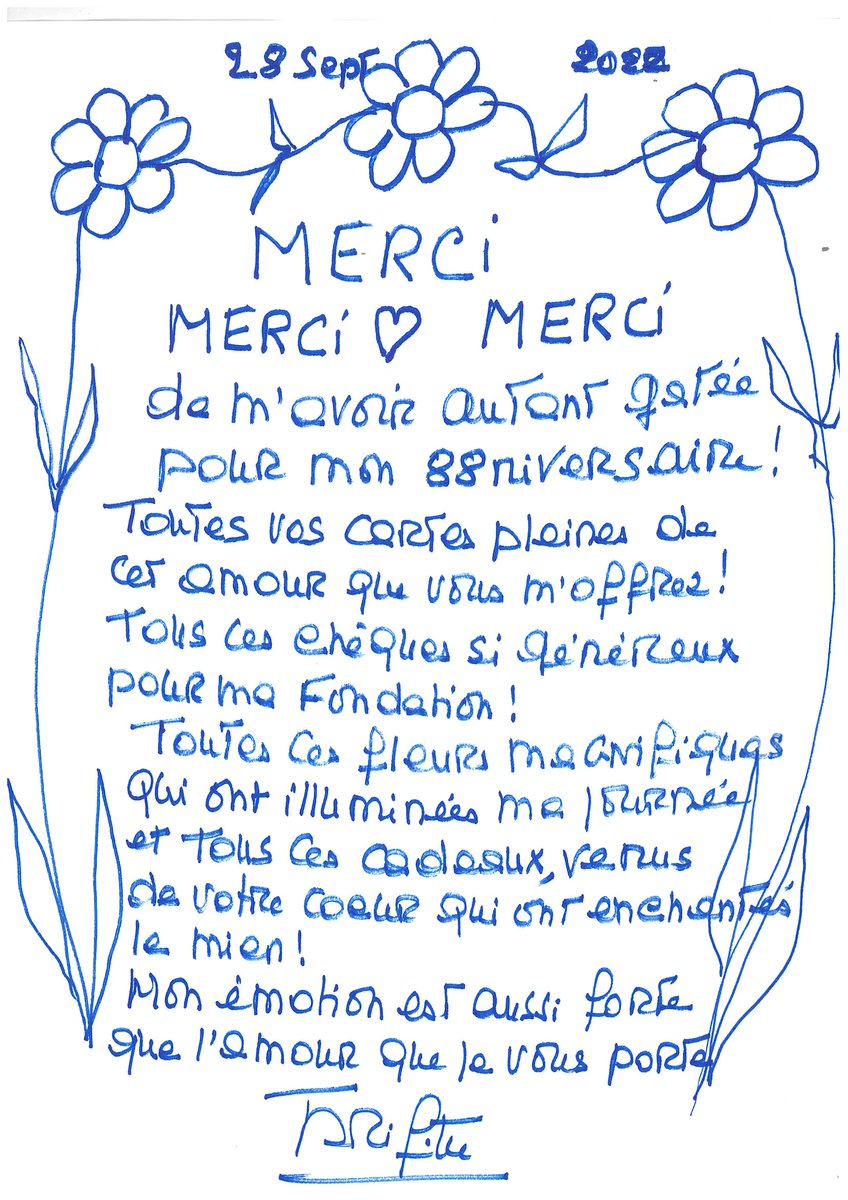 28 Sept 2022
MERCI
MERCI ♡ MERCI
de m'avoir autant gatée
pour mon 88niversaire!
Toutes vos cartes pleines de
cet amour que vous m'offrez!
Tous ces chèques si généreux
pour ma Fondation!
Toutes ces fleurs magnifiques
qui ont illuminées ma journée
et tous ces cadeaux, venus
de votre coeur qui ont enchantés
le mien!
Mon émotion est aussi forte
que l'amour que je vous porte